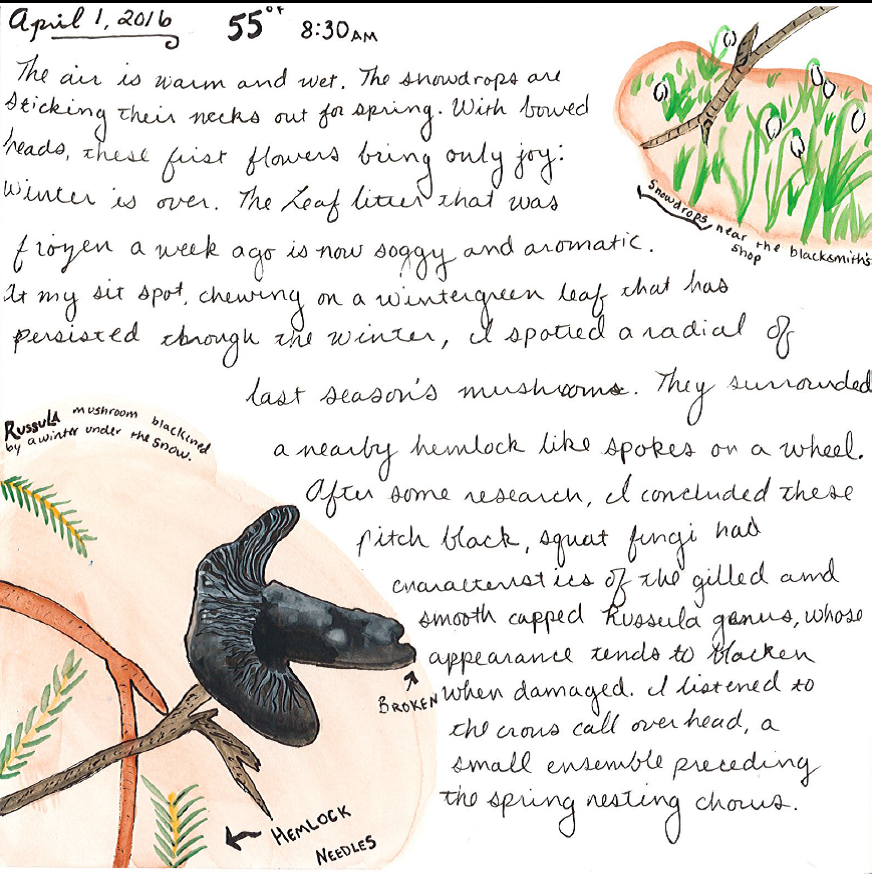 April 1, 2016 55°F 8:30AM
The air is warm and wet. The snowdrops are
sticking their necks out for spring. With bowed
heads, these first flowers bring only joy:
Winter is over. The leaf litter that was
frozen a week ago is now soggy and aromatic.
At my sit spot, chewing on a wintergreen leaf that has
persisted through the winter, I spotted a radial of
last season's mushrooms. They surrounded
a nearby hemlock like spokes on a wheel.
After some research, I concluded these
pitch black, squat fungi had
characteristics of the gilled and
smooth capped Russula genus, whose
appearance tends to blacken
when damaged. I listened to
the crows call overhead, a
small ensemble preceding
the spring nesting chorus.
Snowdrops near the blacksmith's
shop
Russula mushroom blackined
by a winter under the snow.
BROKEN
HEMLOCK
NEEDLES